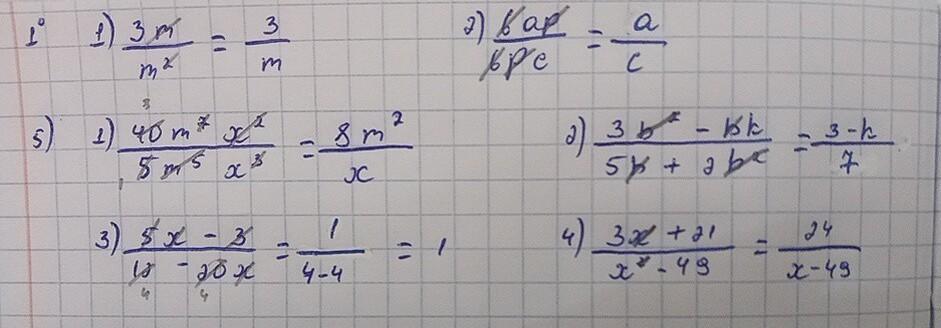 1° 1) 3m/m² = 3/m 2) 6ap/6pc = a/c
5) 1) 40m⁷x²/5m⁵x³ = 8m²/x 2) 3b² - bk/5b + 2b² = 3-k/7
3) 5x - 3/12 - 20x = 1/4-4 = 1 4) 3x + 21/x² - 49 = 24/x-49